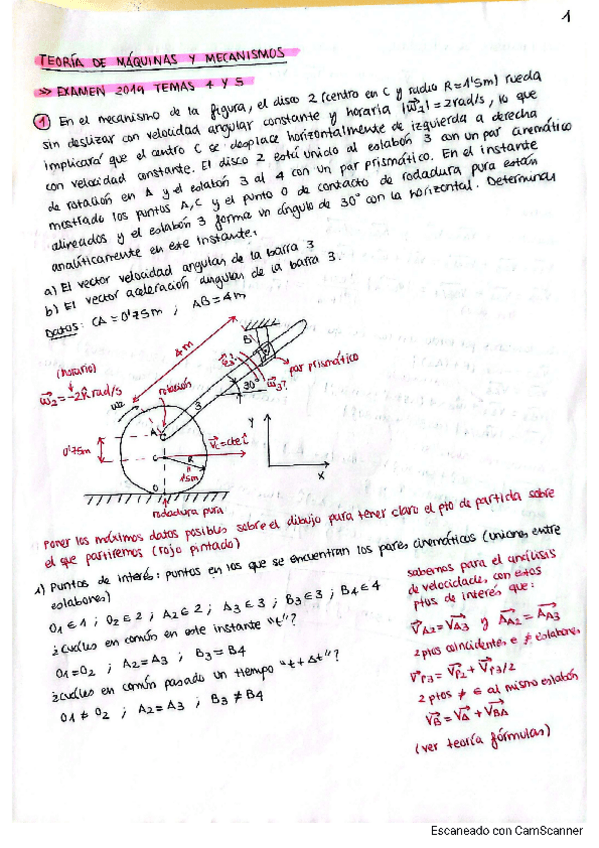 1
TEORÍA DE MÁQUINAS Y MECANISMOS
>> EXAMEN 2019 TEMAS 4 Y 5
1 En el mecanismo de la figura, el disco 2 (centro en C y radio R=1'5m) rueda
sin deslizar con velocidad angular constante y horaria |ω2| = 2rad/s, lo que
implicará que el centro C se desplace horizontalmente de izquierda a derecha
con velocidad constante. El disco 2 está unido al eslabón 3 con un par cinemático
de rotación en A y el eslabón 3 al 4 con un par prismático. En el instante
mostrado los puntos A,C y el punto O de contacto de rodadura pura están
alineados y el eslabón 3 forma un ángulo de 30° con la horizontal. Determinar
analíticamente en este instante.
a) El vector velocidad angular de la barra 3
b) El vector aceleración angular de la barra 3.
Datos: CA = 0'75m ; AB = 4m
4m
B
(horario)
ω2 = -2k rad/s
rotación
par prismático
30°
ω3?
ω2
3
A
0'75m
C
Vc=cte i
R
1'5m
O
Y
X
rodadura pura
Poner los máximos datos posibles sobre el dibujo para tener claro el pto de partida sobre
el que partiremos (rojo pintado)
1) Puntos de interés: puntos en los que se encuentran los pares cinemáticos (uniones entre
eslabones)
O1 ∈ 1 ; O2 ∈ 2 ; A2 ∈ 2 ; A3 ∈ 3 ; B3 ∈ 3 ; B4 ∈ 4
¿cuáles en común en este instante "t"?
O1 = O2 ; A2 = A3 ; B3 = B4
¿cuáles en común pasado un tiempo "t + Δt"?
O1 ≠ O2 ; A2 = A3 ; B3 ≠ B4
sabemos para el análisis
de velocidade, con estos
ptos de interés que:
VA2 = VA3 y AA2 = AA3
2 ptos coincidentes e ≠ eslabones
VP3 = VP2 + VP3/2
2 ptos ≠ ∈ al mismo eslabón
VB = VA + VBA
(ver teoría fórmulas)
Escaneado con CamScanner